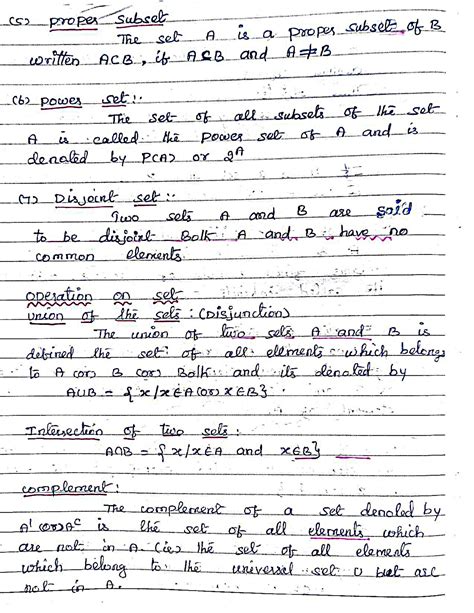 (5) proper subset
The set A is a proper subset of B
written A⊂B, if A⊆B and A≠B
(6) power set:
The set of all subsets of the set
A is called the power set of A and is
denoted by P(A) or 2^A
(7) Disjoint set:
Two sets A and B are said
to be disjoint Both A and B have no
common elements.
operation on set
union of the sets: (Disjunction)
The union of two sets A and B is
defined the set of all ellments which belongs
to A (or) B (or) Both and its denoted by
A∪B = {x/x∈A (or) x∈B}.
Intersection of two sets:
A∩B = {x/x∈A and x∈B}
complement:
The complement of a set denoted by
A' (or) A^c is the set of all elements which
are not in A. (ie) the set of all elements
which belong to the universal set U but are
not in A.